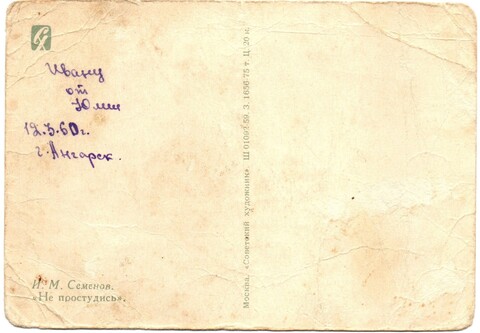 Ивану
от
Юли
12.3.60г.
г. Ангарск.
И. М. Семенов.
«Не простудись».
Москва. «Советский художник». Ш 01093-59. З. 1656-75 т. Ц. 20 к.